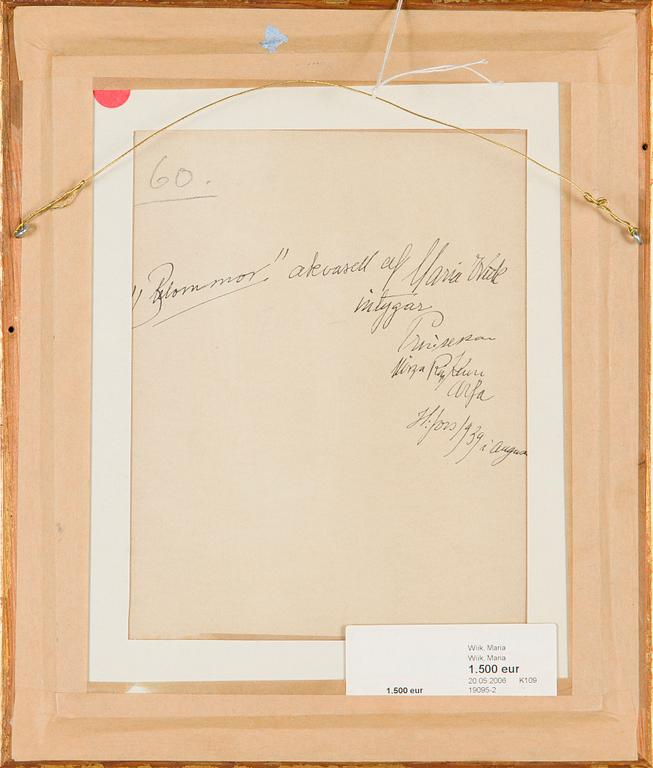 60.
"Blommor." akvarell af Maria Wiik
intygar
Prinsessan
Mirza Riza Khan
Arfa
H:fors 1939 i augus
Wiik, Maria
Wiik, Maria
1.500 eur
20.05.2006 K109
1.500 eur 19095-2